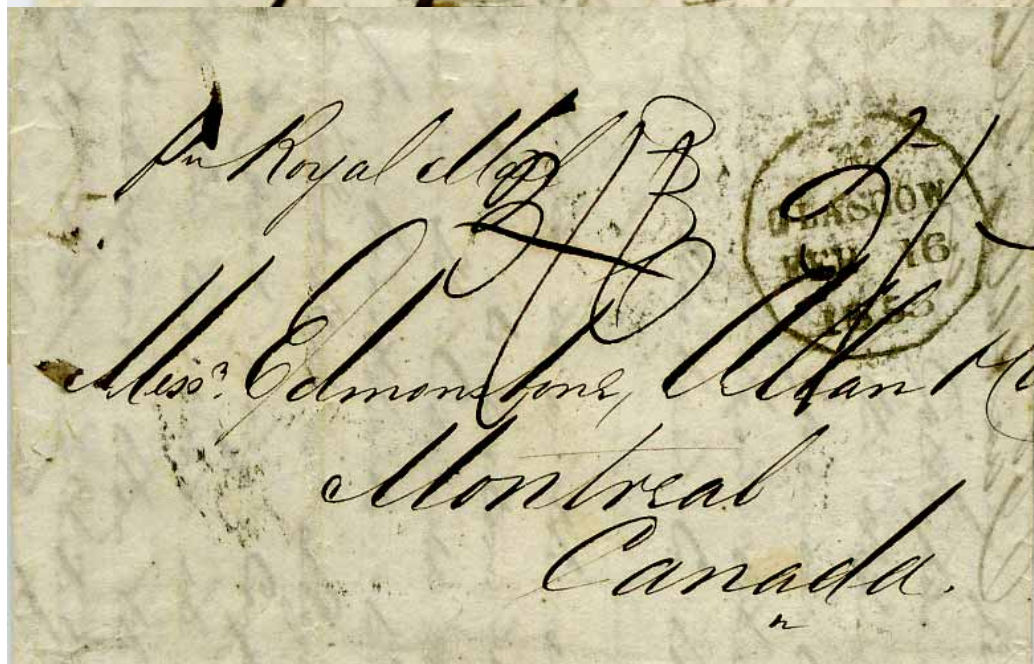 pr Royal Mail
GLASGOW
FEB 16
1853
Messrs. Edmonstone, Allan & Co
Montreal
Canada.